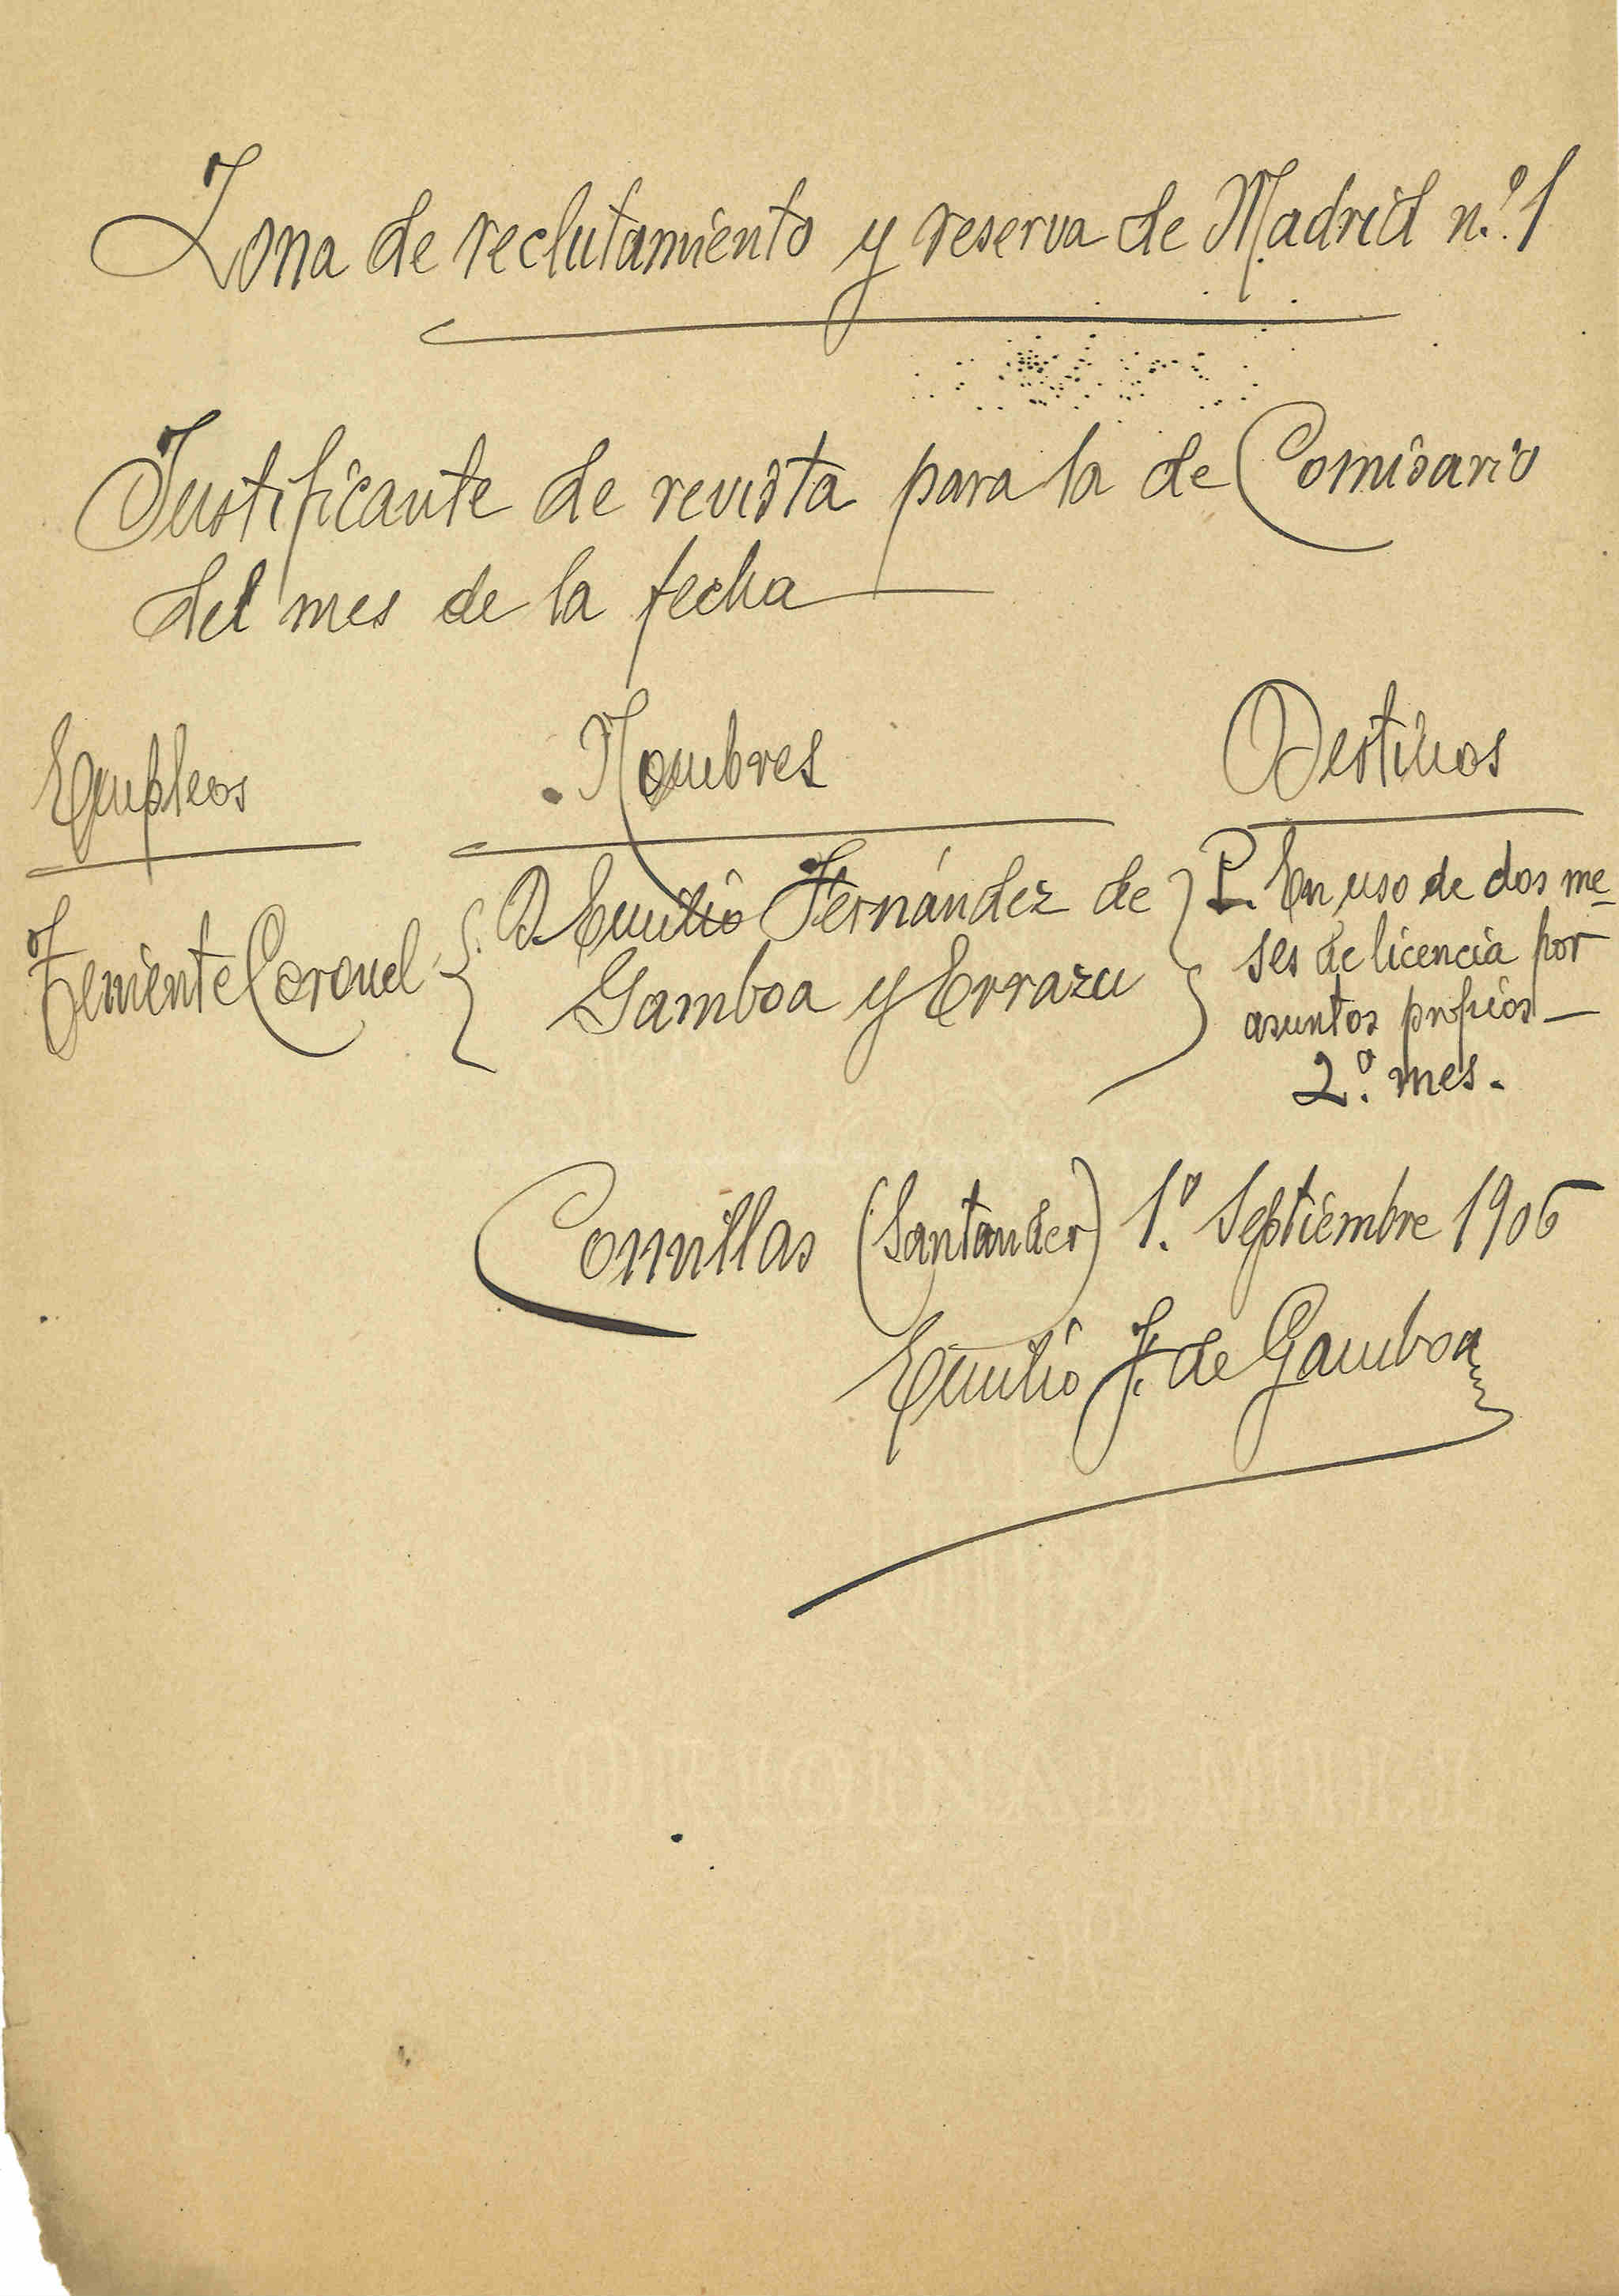 Zona de reclutamiento y reserva de Madrid n.º 1
Justificante de revista para la de Comisario
del mes de la fecha
Empleos Nombres Destinos
Teniente Coronel D. Emilio Fernández de Gamboa y Errazu P. En uso de dos me-
ses de licencia por
asuntos propios
2.º mes.
Comillas (Santander) 1.º Septiembre 1906
Emilio F. de Gamboa